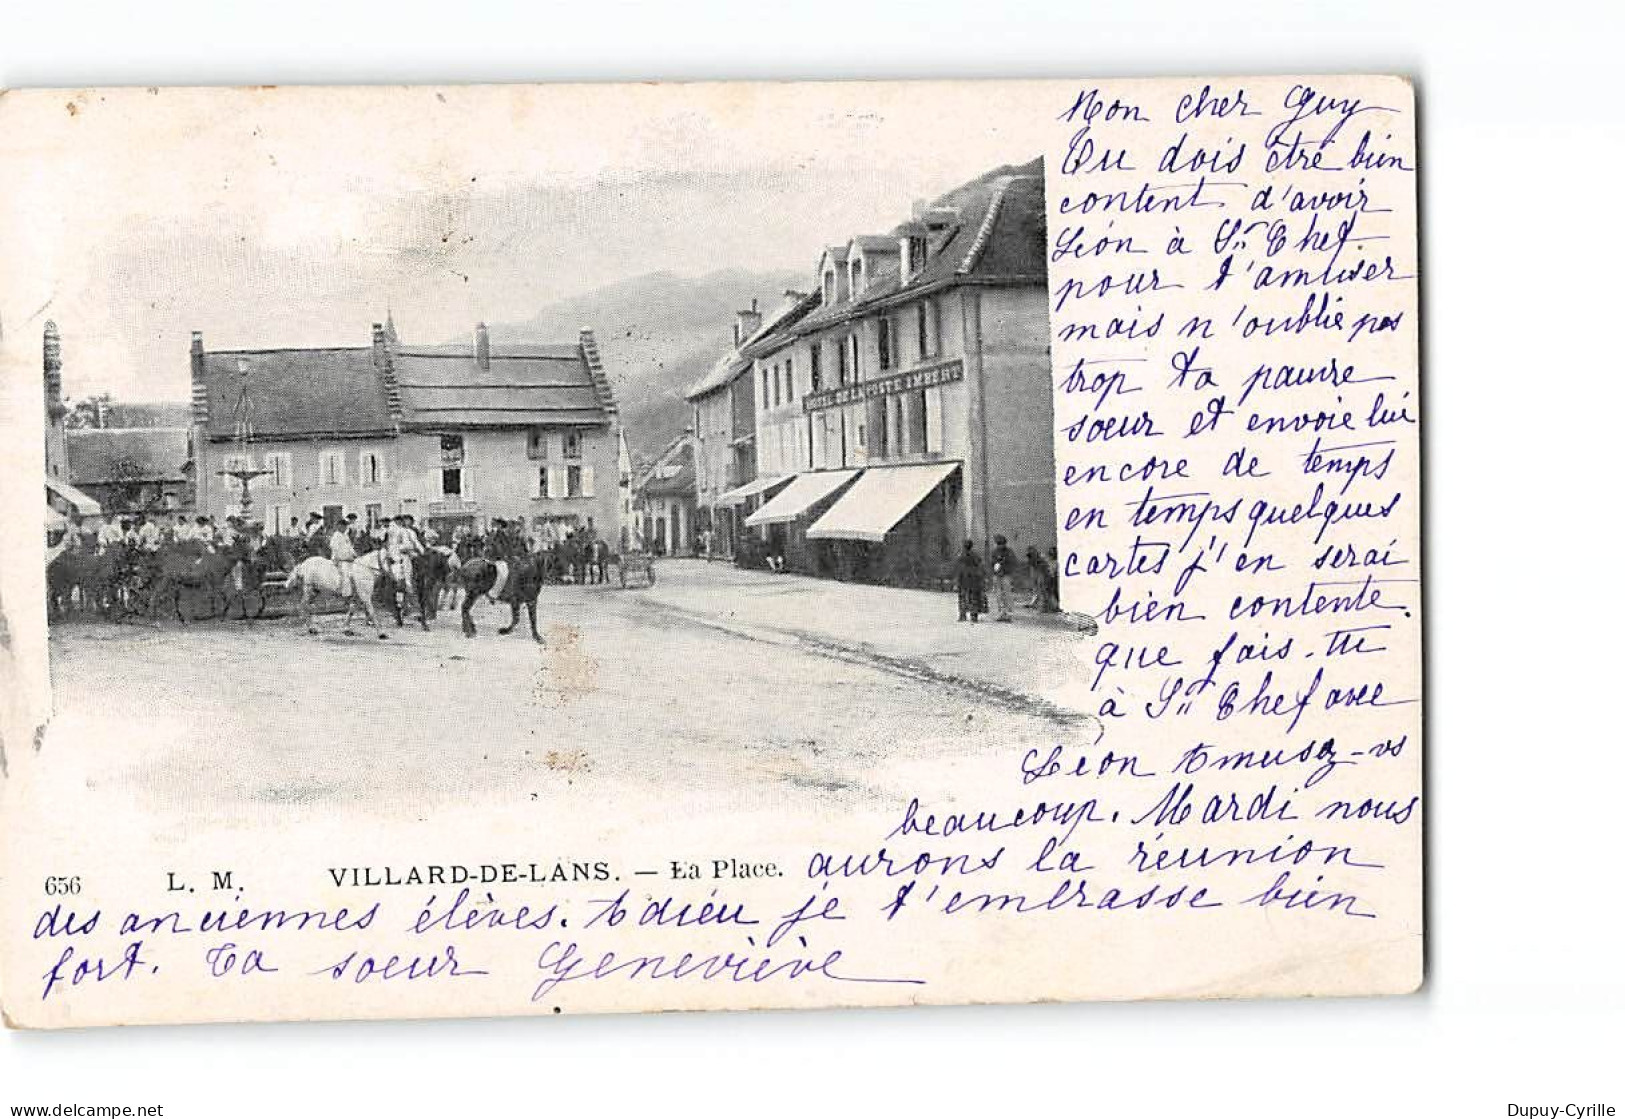 Mon cher Guy
Tu dois être bien
content d'avoir
Léon à St Chef
pour t'amuser
mais n'oublie pas
trop ta pauvre
soeur et envoie lui
encore de temps
en temps quelques
cartes j'en serai
bien contente.
que fais-tu
à St Chef avec
Léon Amusez-vs
beaucoup. Mardi nous
aurons la réunion
des anciennes élèves. Adieu je t'embrasse bien
fort. Ta soeur Geneviève
HOTEL DE LA POSTE IMBERT
656 L. M. VILLARD-DE-LANS. — La Place.
www.delcampe.net
Dupuy-Cyrille